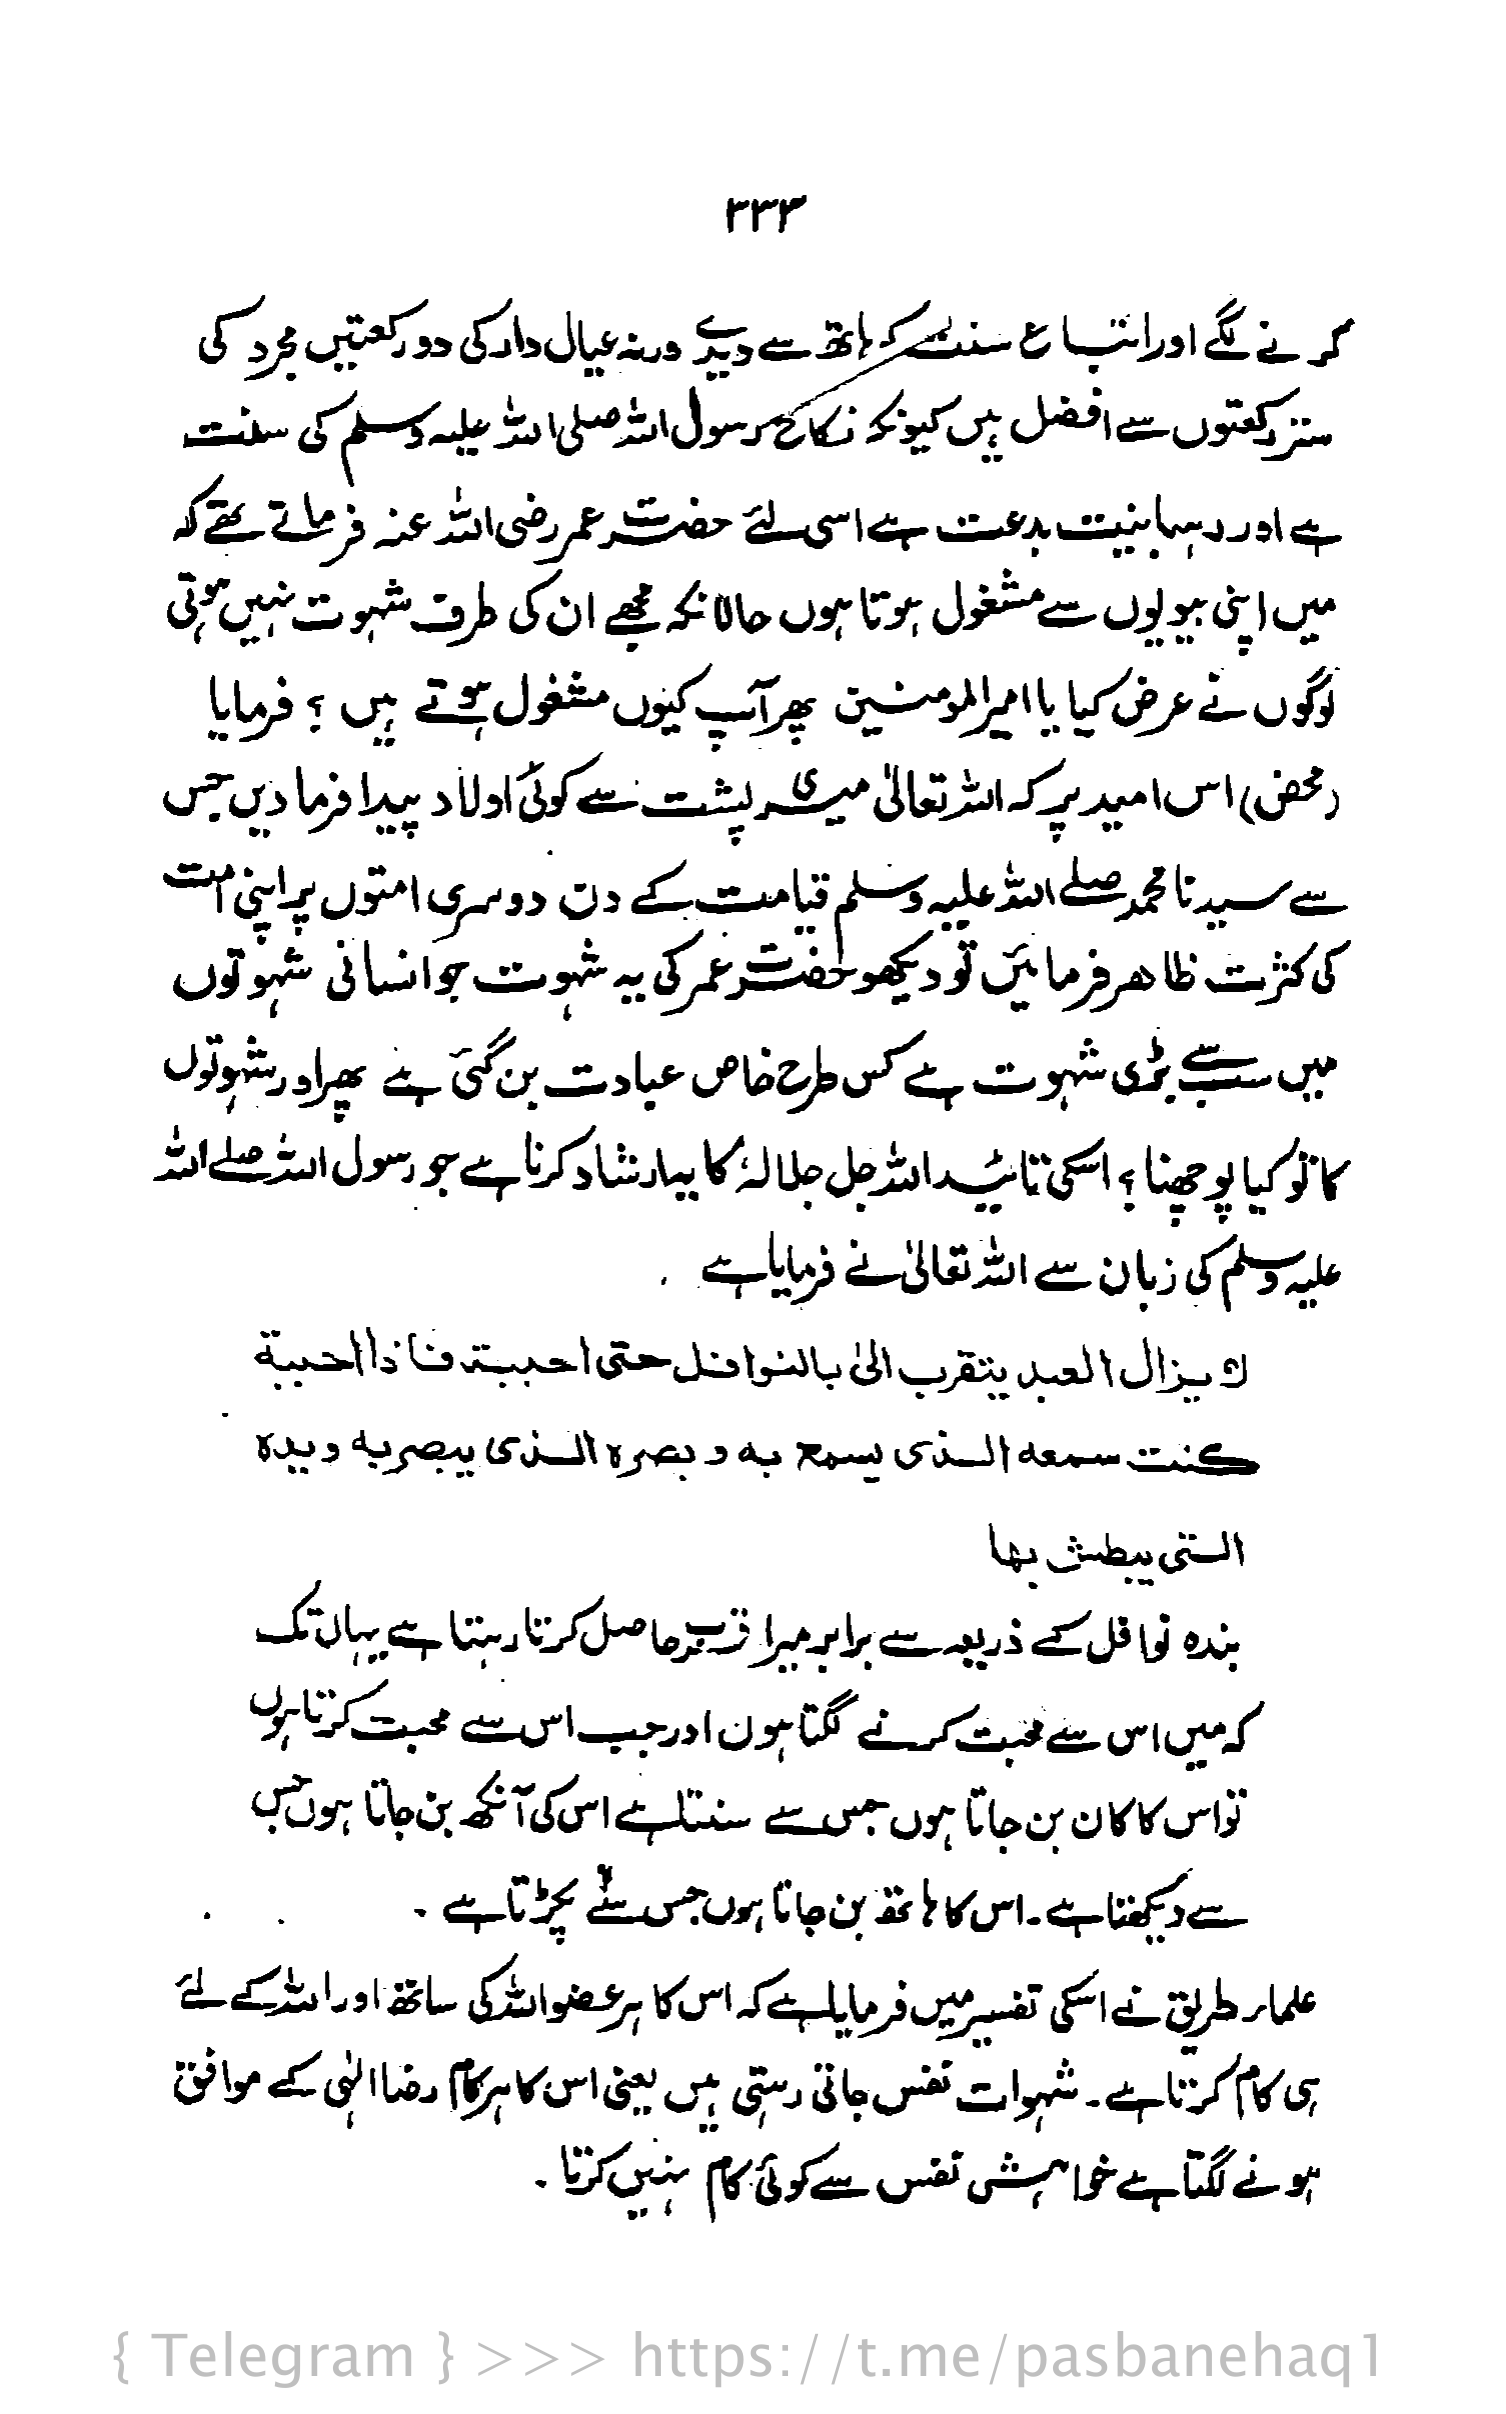 ۳۳۳
کرنے لگے اور اتباع سنت کہ ہاتھ سے دیدے ورنہ عیال دار کی دو رکعتیں مجرد کی
ستر رکعتوں سے افضل ہیں کیونکہ نکاح رسول اللہ صلی اللہ علیہ وسلم کی سنت
ہے اور رہبانیت بدعت ہے اسی لئے حضرت عمر رضی اللہ عنہ فرماتے تھے کہ
میں اپنی بیویوں سے مشغول ہوتا ہوں حالانکہ مجھے ان کی طرف شہوت نہیں ہوتی
لوگوں نے عرض کیا یا امیر المومنین پھر آپ کیوں مشغول ہوتے ہیں ؟ فرمایا
(محض) اس امید پر کہ اللہ تعالیٰ میری پشت سے کوئی اولاد پیدا فرما دیں جس
سے سیدنا محمد صلے اللہ علیہ وسلم قیامت کے دن دوسری امتوں پر اپنی امت
کی کثرت ظاہر فرمائیں تو دیکھو حضرت عمر کی یہ شہوت جو انسانی شہوتوں
میں سب سے بڑی شہوت ہے کس طرح خاص عبادت بن گئی ہے پھر اور شہوتوں
کا تو کیا پوچھنا ؟ اسکی تائید اللہ جل جلالہٗ کا یہ ارشاد کرتا ہے جو رسول اللہ صلے اللہ
علیہ وسلم کی زبان سے اللہ تعالیٰ نے فرمایا ہے ۔
لا یزال العبد یتقرب الیٰ بالنوافل حتی احببتہ فاذا احببة
کنت سمعه الذی یسمع به و بصره الذی یبصر به و یده
التی یبطش بها
بندہ نوافل کے ذریعہ سے برابر میرا قرب حاصل کرتا رہتا ہے یہاں تک
کہ میں اس سے محبت کرنے لگتا ہوں اور جب اس سے محبت کرتا ہوں
تو اس کا کان بن جاتا ہوں جس سے سنتا ہے اس کی آنکھ بن جاتا ہوں جس
سے دیکھتا ہے۔ اس کا ہاتھ بن جاتا ہوں جس سے پکڑتا ہے ۔
علماء طریق نے اسکی تفسیر میں فرمایا ہے کہ اس کا ہر عضو اللہ کی ساتھ اور اللہ کے لئے
ہی کام کرتا ہے۔ شہوات نفس جاتی رہتی ہیں یعنی اس کا ہر کام رضا الٰہی کے موافق
ہونے لگتا ہے خواہش نفس سے کوئی کام نہیں کرتا ۔
{ Telegram } >>> https://t.me/pasbanehaq1